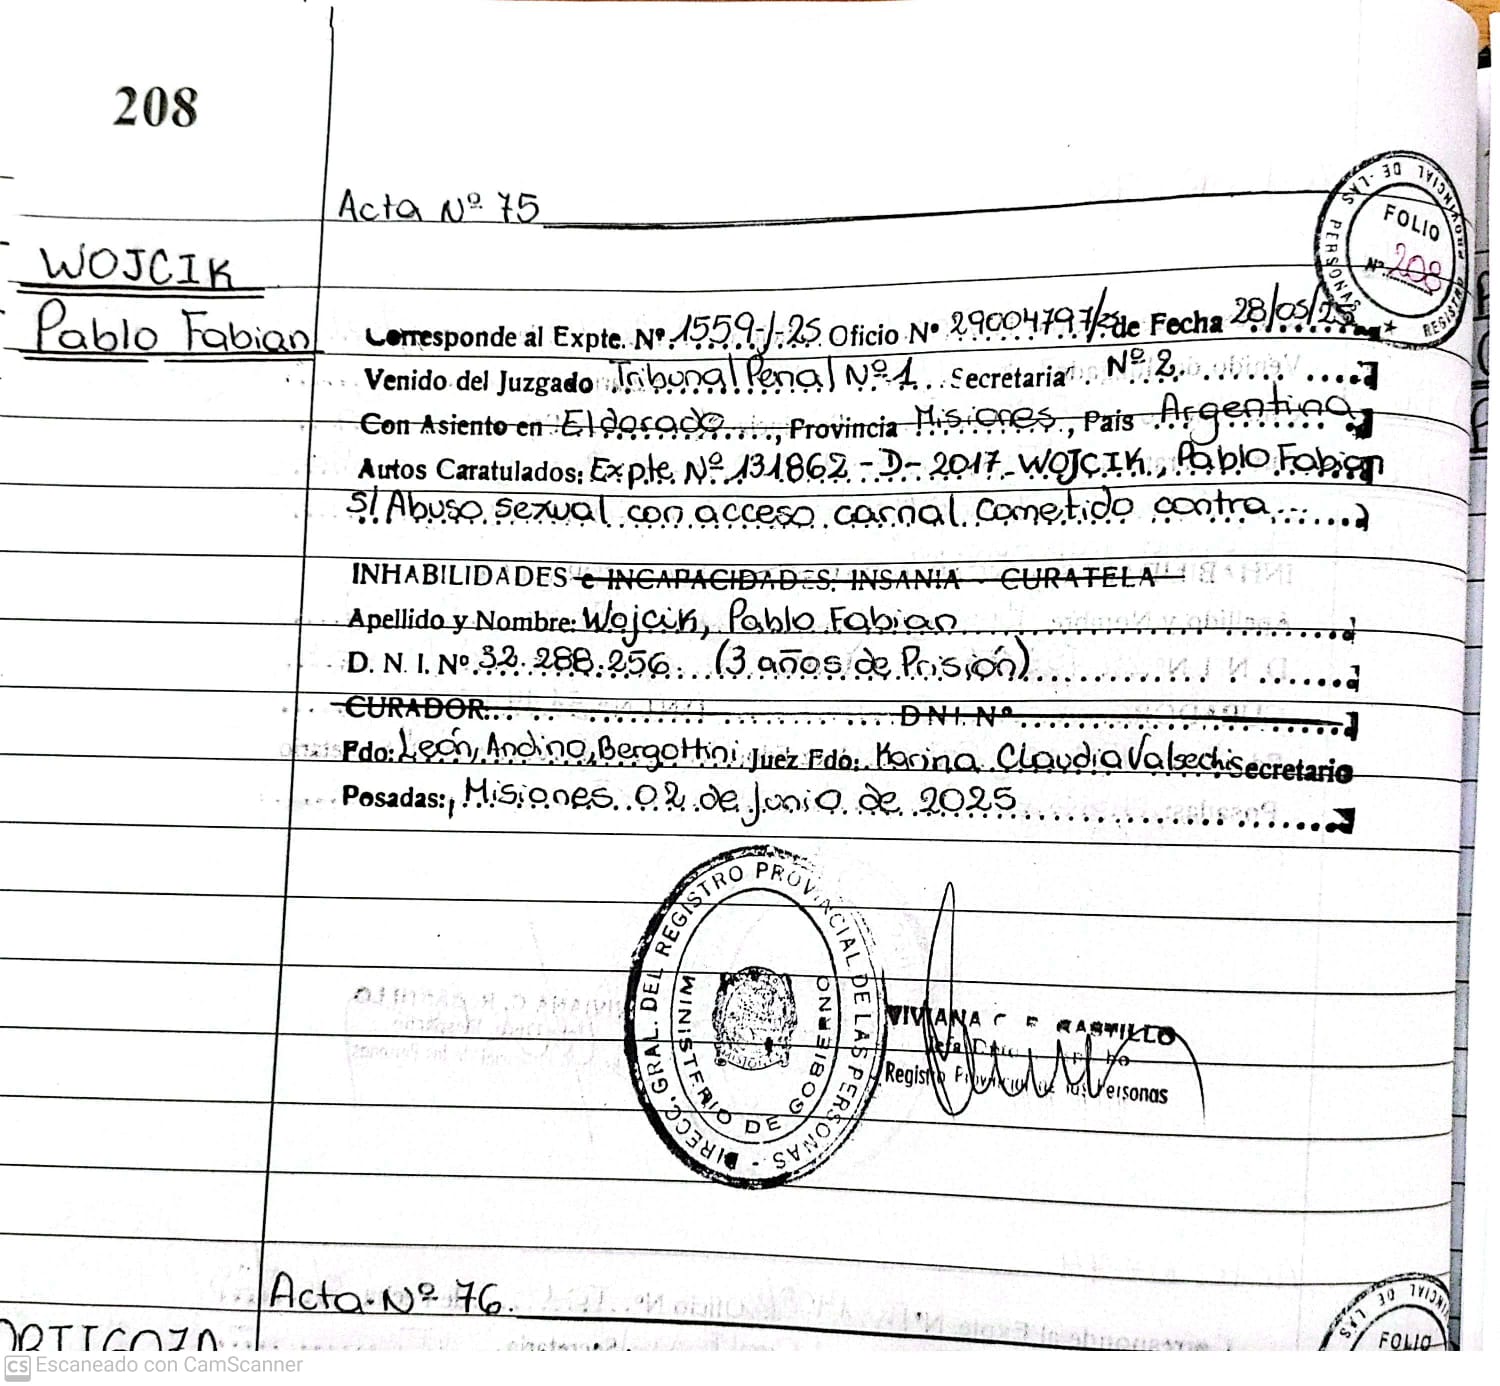 208
Acta Nº 75
REGISTRO PROVINCIAL DE LAS PERSONAS
FOLIO
Nº 208
WOJCIK
Pablo Fabian
Corresponde al Expte. Nº 1559-J-25 Oficio Nº 29004797/25 de Fecha 28/05/25
Venido del Juzgado Tribunal Penal Nº 1 Secretaria Nº 2
Con Asiento en Eldorado, Provincia Misiones, País Argentina
Autos Caratulados: Expte Nº 131862-D-2017-WOJCIK, Pablo Fabian
S/ Abuso sexual con acceso carnal cometido contra
INHABILIDADES e INCAPACIDADES: INSANIA - CURATELA
Apellido y Nombre: Wojcik, Pablo Fabian
D. N. I. Nº 32.288.256. (3 años de Prisión)
CURADOR: DNI. Nº
Fdo: León, Andino, Bergottini Juez Fdo: Karina Claudia Valsechi Secretario
Posadas:, Misiones 02 de Junio de 2025
DIRECC. GRAL. DEL REGISTRO PROVINCIAL DE LAS PERSONAS -
MINISTERIO DE GOBIERNO
VIVIANA C CASTILLO
Registro Provincial de las Personas
Acta Nº 76.
FOLIO
CS Escaneado con CamScanner